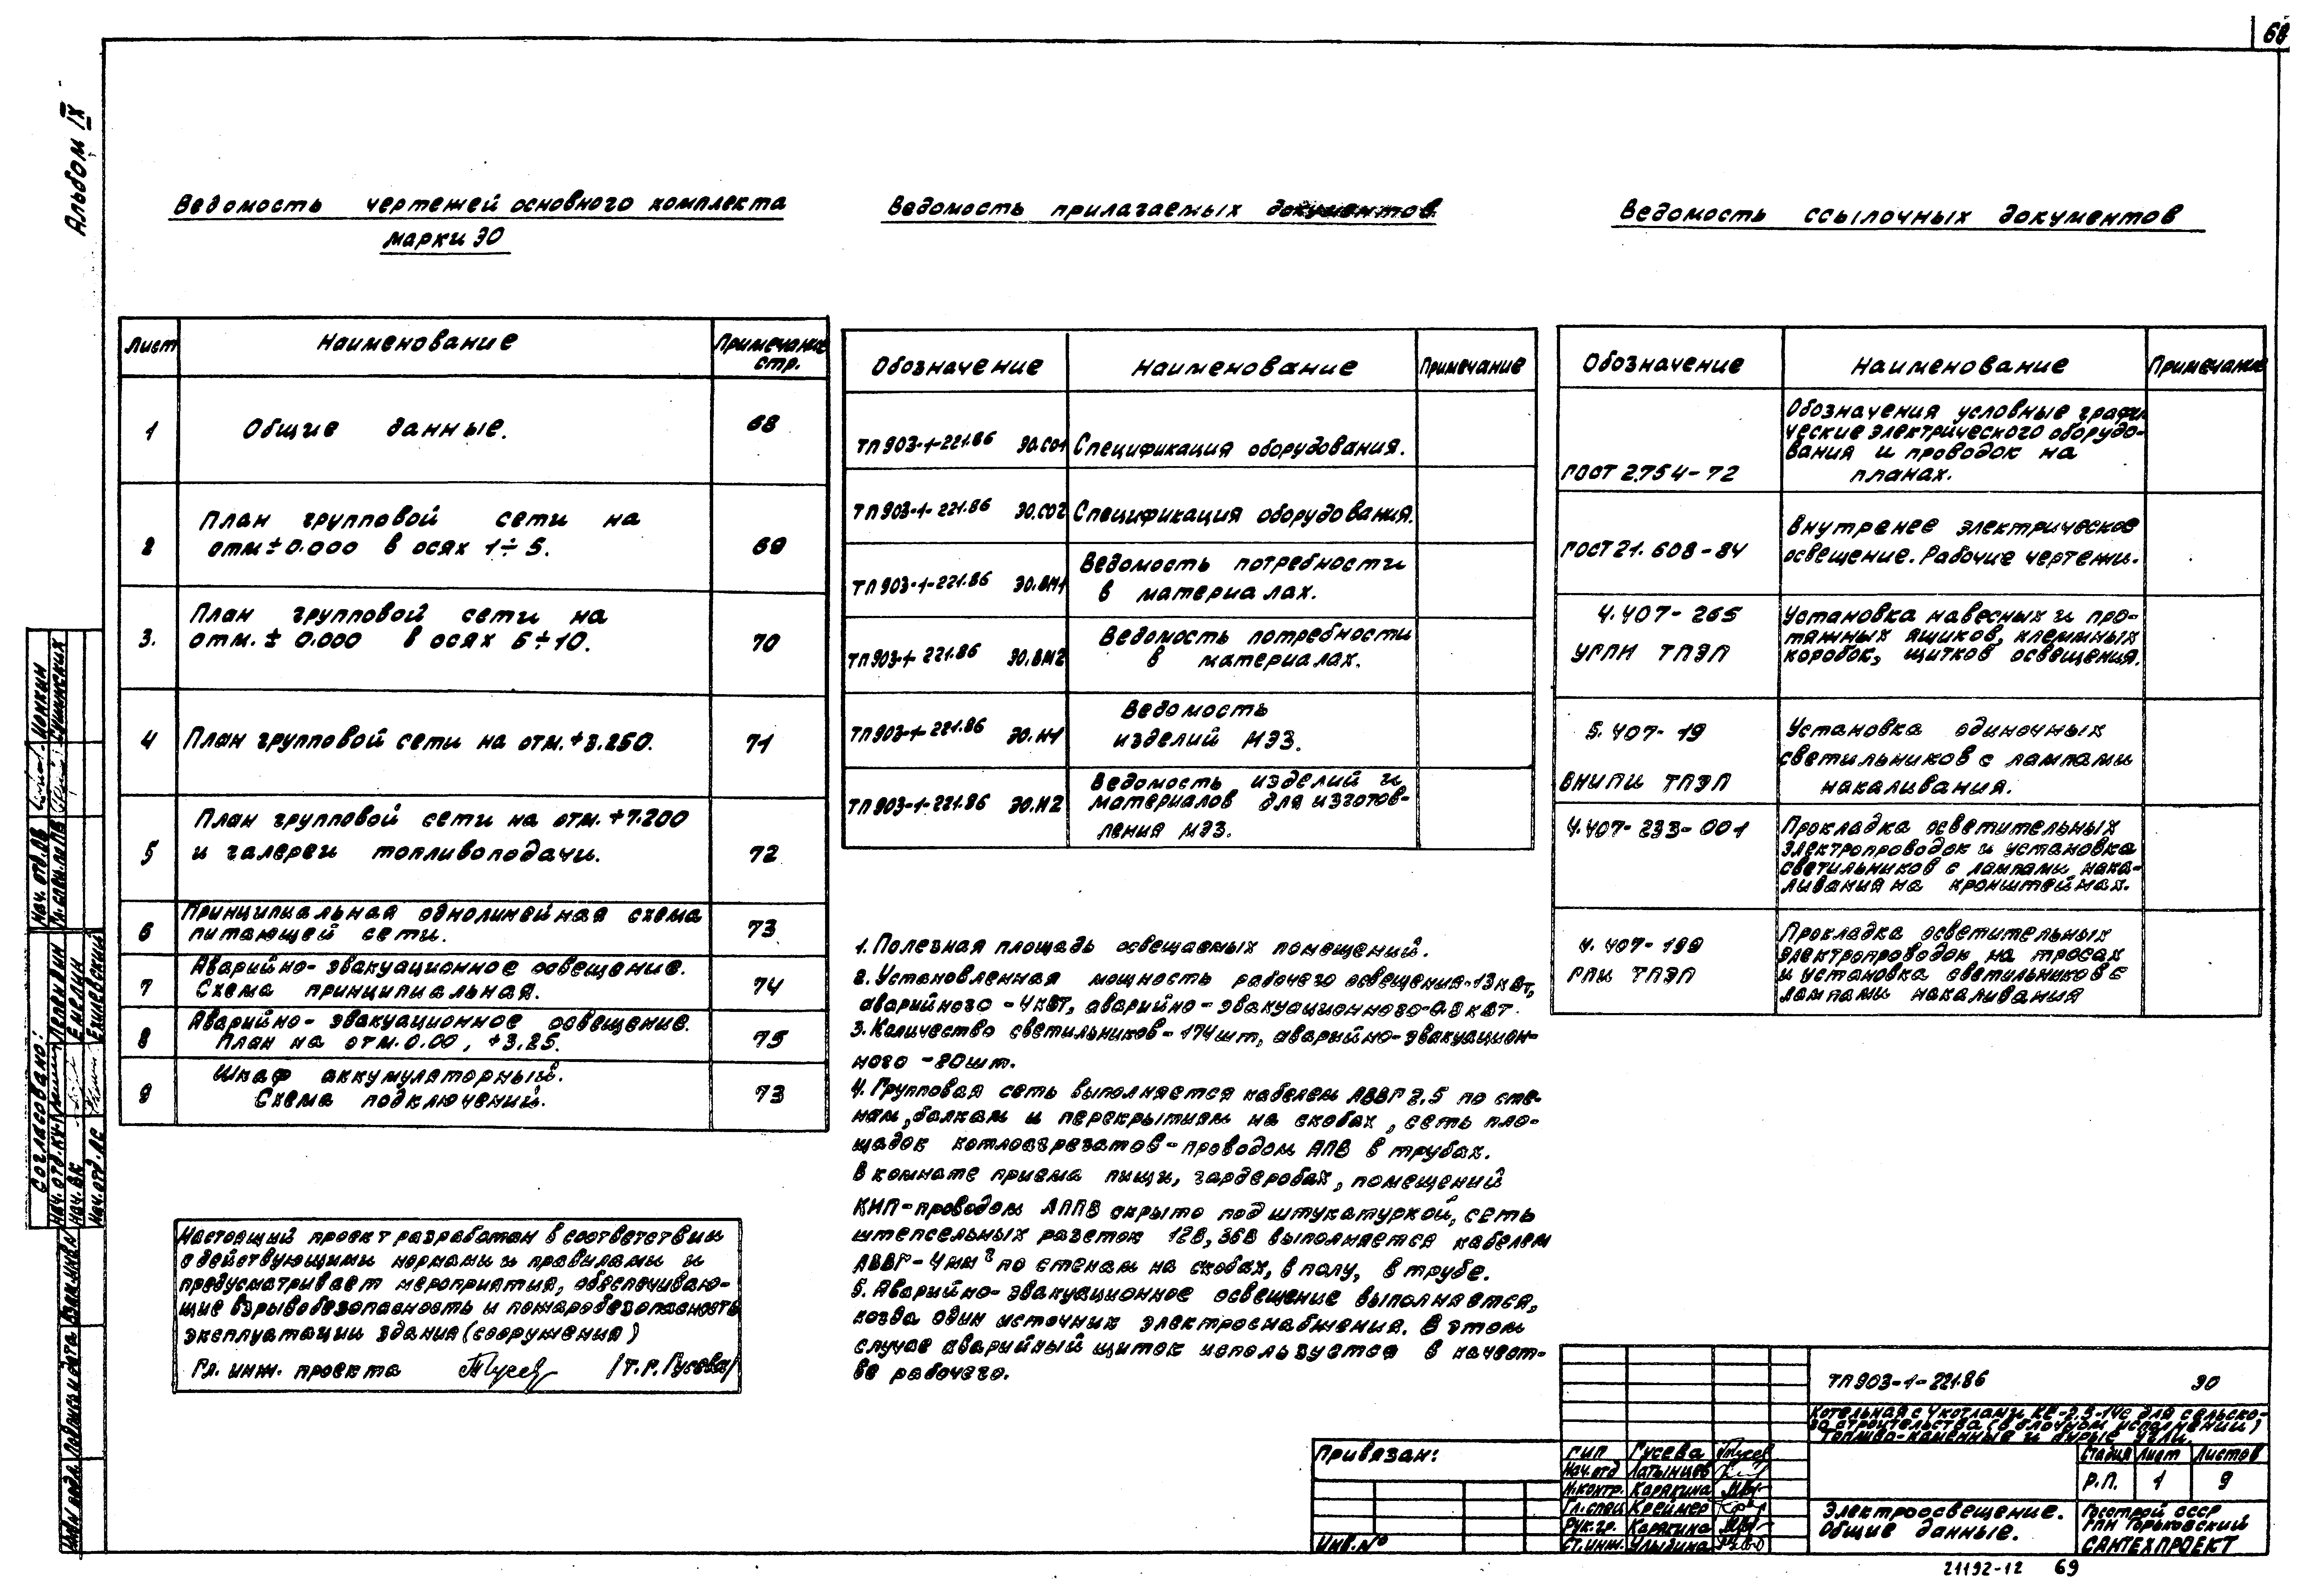 68
Альбом IX
Ведомость чертежей основного комплекта
марки ЭО
Лист
Наименование
Примечание
стр.
1
Общие данные.
68
2
План групповой сети на
отм ± 0.000 в осях 1÷5.
69
3.
План групповой сети на
отм. ± 0.000 в осях 6÷10.
70
4
План групповой сети на отм. +3.250.
71
5
План групповой сети на отм. +7.200
и галереи топливоподачи.
72
6
Принципиальная однолинейная схема
питающей сети.
73
7
Аварийно-эвакуационное освещение.
Схема принципиальная.
74
8
Аварийно-эвакуационное освещение.
План на отм. 0.00, +3.25.
75
9
Шкаф аккумуляторный.
Схема подключений.
73
Настоящий проект разработан в соответствии
с действующими нормами и правилами и
предусматривает мероприятия, обеспечиваю-
щие взрывобезопасность и пожаробезопасность
эксплуатации здания (сооружения)
Гл. инж. проекта /Т.Г. Гусева/
Ведомость прилагаемых документов
Обозначение
Наименование
Примечание
ТП 903-1-221.86 ЭО.СО1
Спецификация оборудования.
ТП 903-1-221.86 ЭО.СО2
Спецификация оборудования.
ТП 903-1-221.86 ЭО.ВМ1
Ведомость потребности
в материалах.
ТП 903-1-221.86 ЭО.ВМ2
Ведомость потребности
в материалах.
ТП 903-1-221.86 ЭО.И1
Ведомость
изделий МЭЗ.
ТП 903-1-221.86 ЭО.И2
Ведомость изделий и
материалов для изготов-
ления МЭЗ.
1. Полезная площадь освещаемых помещений.
2. Установленная мощность рабочего освещения-13 кВт,
аварийного - 4 кВт, аварийно-эвакуационного- кВт.
3. Количество светильников - 174 шт, аварийно-эвакуацион-
ного - 20 шт.
4. Групповая сеть выполняется кабелем АВВГ 2,5 по сте-
нам, балкам и перекрытиям на скобах, сеть пло-
щадок котлоагрегатов - проводом АПВ в трубах.
В комнате приема пищи, гардеробах, помещений
КИП-проводом АППВ скрыто под штукатуркой, сеть
штепсельных розеток 12В, 36В выполняется кабелем
АВВГ-4мм² по стенам на скобах, в полу, в трубе.
5. Аварийно-эвакуационное освещение выполняется,
когда один источник электроснабжения. В этом
случае аварийный щиток используется в качест-
ве рабочего.
Ведомость ссылочных документов
Обозначение
Наименование
Примечание
ГОСТ 2.754-72
Обозначения условные графи-
ческие электрического оборудо-
вания и проводок на
планах.
ГОСТ 21.608-84
Внутренее электрическое
освещение. Рабочие чертежи.
4.407-265
УГПИ ТПЭП
Установка навесных и про-
тяжных ящиков, клеммных
коробок, щитков освещения.
5.407-19
ВНИПИ ТПЭП
Установка одиночных
светильников с лампами
накаливания.
4.407-233-001
Прокладка осветительных
электропроводок и установка
светильников с лампами нака-
ливания на кронштейнах.
4.407-199
ГПИ ТПЭП
Прокладка осветительных
электропроводок на тросах
и установка светильников с
лампами накаливания
Согласовано:
Нач. отд. КИП Лепенкин
Нач. ВК Емелин
Нач. отд. АС
Нач. отд. ОВ Ионкин
Гл. спец. ПВ
Инв. N подл. Подпись и дата Взам. инв. N
ТП 903-1-221.86 ЭО
Котельная с 4 котлами КЕ-2,5-14с для сельско-
го строительства (в блочном исполнении)
Топливо-каменные и бурые угли.
Привязан:
Инв. N°
ГИП Гусева
Нач. отд Латынцев
Н.контр. Карякина
Гл. спец Креймер
Рук. гр. Карякина
Ст. инж. Улыбина
Стадия Лист Листов
Р.П. 1 9
Электроосвещение.
Общие данные.
Госстрой СССР
ГПИ Горьковский
САНТЕХПРОЕКТ
21192-12 69